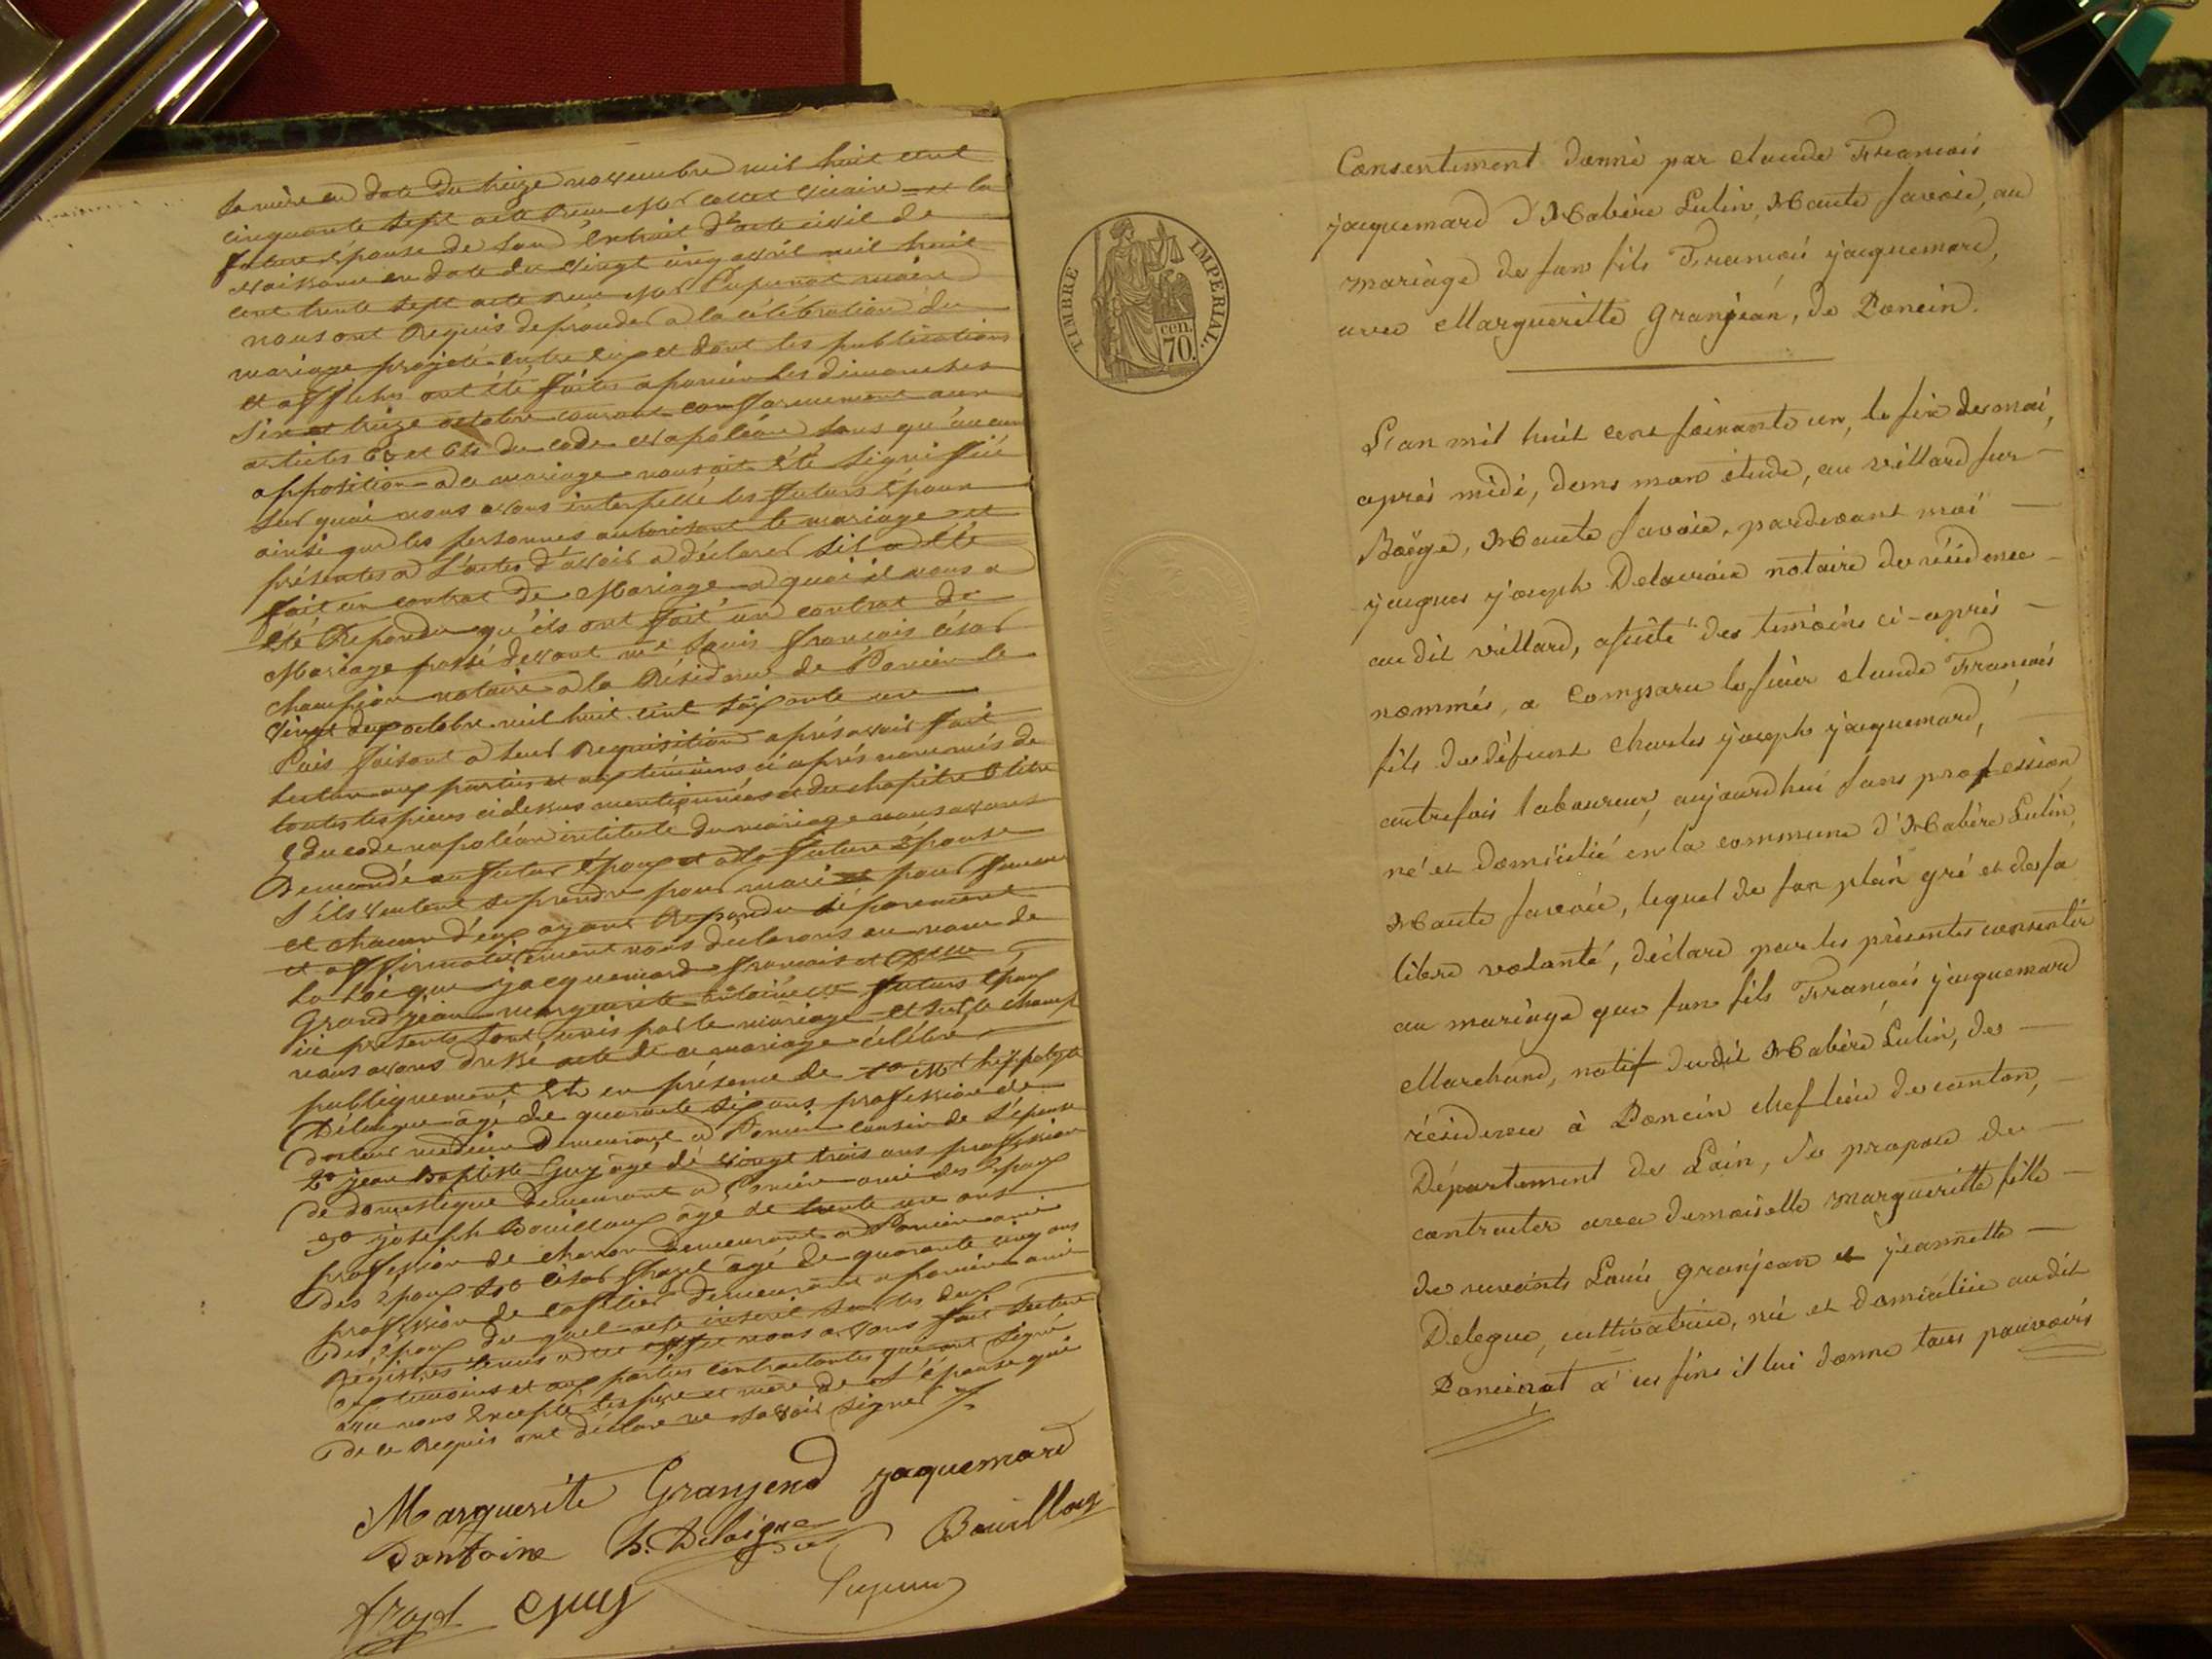 sa mère en date du treize novembre mil huit cent
cinquante sept acte reçu Mr Collet vicaire et la
future épouse de son Extrait d'acte civil de
naissance en date du vingt cinq avril mil huit
cent trente sept acte reçu Mr Pupunat maire
nous ont Requis de procéder a la célébration du
mariage projeté entre eux et dont les publications
et affiches ont été faites a poncin les dimanches
Six et treize octobre courant conformement aux
articles 63 et 64 du code Napoléon sans qu'aucune
opposition a ce mariage nous ait été signifiée
sur quoi nous avons interpellé les futurs époux
ainsi que les personnes autorisant le mariage et
présentes a l'acte d'avoir a déclarer s'il a été
fait un contrat de Mariage a quoi il nous a
été Repondu qu'ils ont fait un contrat de
Mariage passé devant me Louis françois César
Champion notaire a la Résidence de Poncin le
vingt deux octobre mil huit cent soixante un
Puis faisant a leur Requisition après avoir fait
lecture aux parties et aux témoins ci après nommés de
toutes les pièces ci dessus mentionnées et du chapitre 6 titre
5 du code napoléon intitulé du mariage nous avons
Demandé au futur époux et a la future épouse
s'ils veulent se prendre pour mari et pour femme
et chacun d'eux ayant Repondu séparement
et affirmativement nous déclarons au nom de
la loi que jacquemard françois et
Grandjean marguerite antoinette futurs époux
ici présents sont unis par le mariage et sur le champ
nous avons dressé acte de ce mariage célébré
publiquement et en présence de 1o Mr hippolyte
Délaigue âgé de quarante six ans profession de
docteur medecin Demeurant a Poncin cousin de l'épouse
2o jean Baptiste Guy âgé de vingt trois ans profession
de domestique demeurant a Poncin ami des époux
3o joseph Bouilloux âgé de trente un ans
profession de charron demeurant a Poncin ami
des époux 4o César âgé de quarante cinq ans
profession de cafetier demeurant a poncin ami
des époux du quel acte inscrit sur les deux
Régistres tenus a cet effet nous avons fait lecture
aux temoins et aux parties contractantes qui ont signé
avec nous Excepté les père et mère de l'épouse qui
de ce Requis ont déclaré ne savoir signer
Marguerite Granjend jaquemard
Dantoine h. Delaigue Bouilloux
Guy
TIMBRE IMPERIAL.
cen.
70.
Consentement donné par claude François
jacquemard d'Habère Lulin, Haute Savoie, au
mariage de son fils François jacquemard,
avec Margueritte granjean, de Poncin.
L'an mil huit cent soixante un, le six de mai,
après midi, dans mon étude, au villard sur
Boëge, Haute Savoie, pardevant moi
jacques joseph Delavoie notaire de résidence
au dit villard, assisté des témoins ci-après
nommés, a comparu le sieur claude François
fils de défunt charles joseph jacquemard,
autrefois laboureur, aujourdhui sans profession
né et domicilié en la commune d'Habère Lulin,
Haute Savoie, lequel de son plein gré et de sa
libre volonté, déclare par les présentes consentir
au mariage que son fils François jacquemard
Marchand, natif dudit Habère Lulin, de
résidence à Poncin chef lieu de canton,
Département de Lain, se propose de
contracter avec demoiselle marguerritte fille
de vivants Louis granjean et jeannette
Delegue, cultivatrice, née et domiciliée au dit
Poncin, et à ces fins il lui donne tous pouvoirs